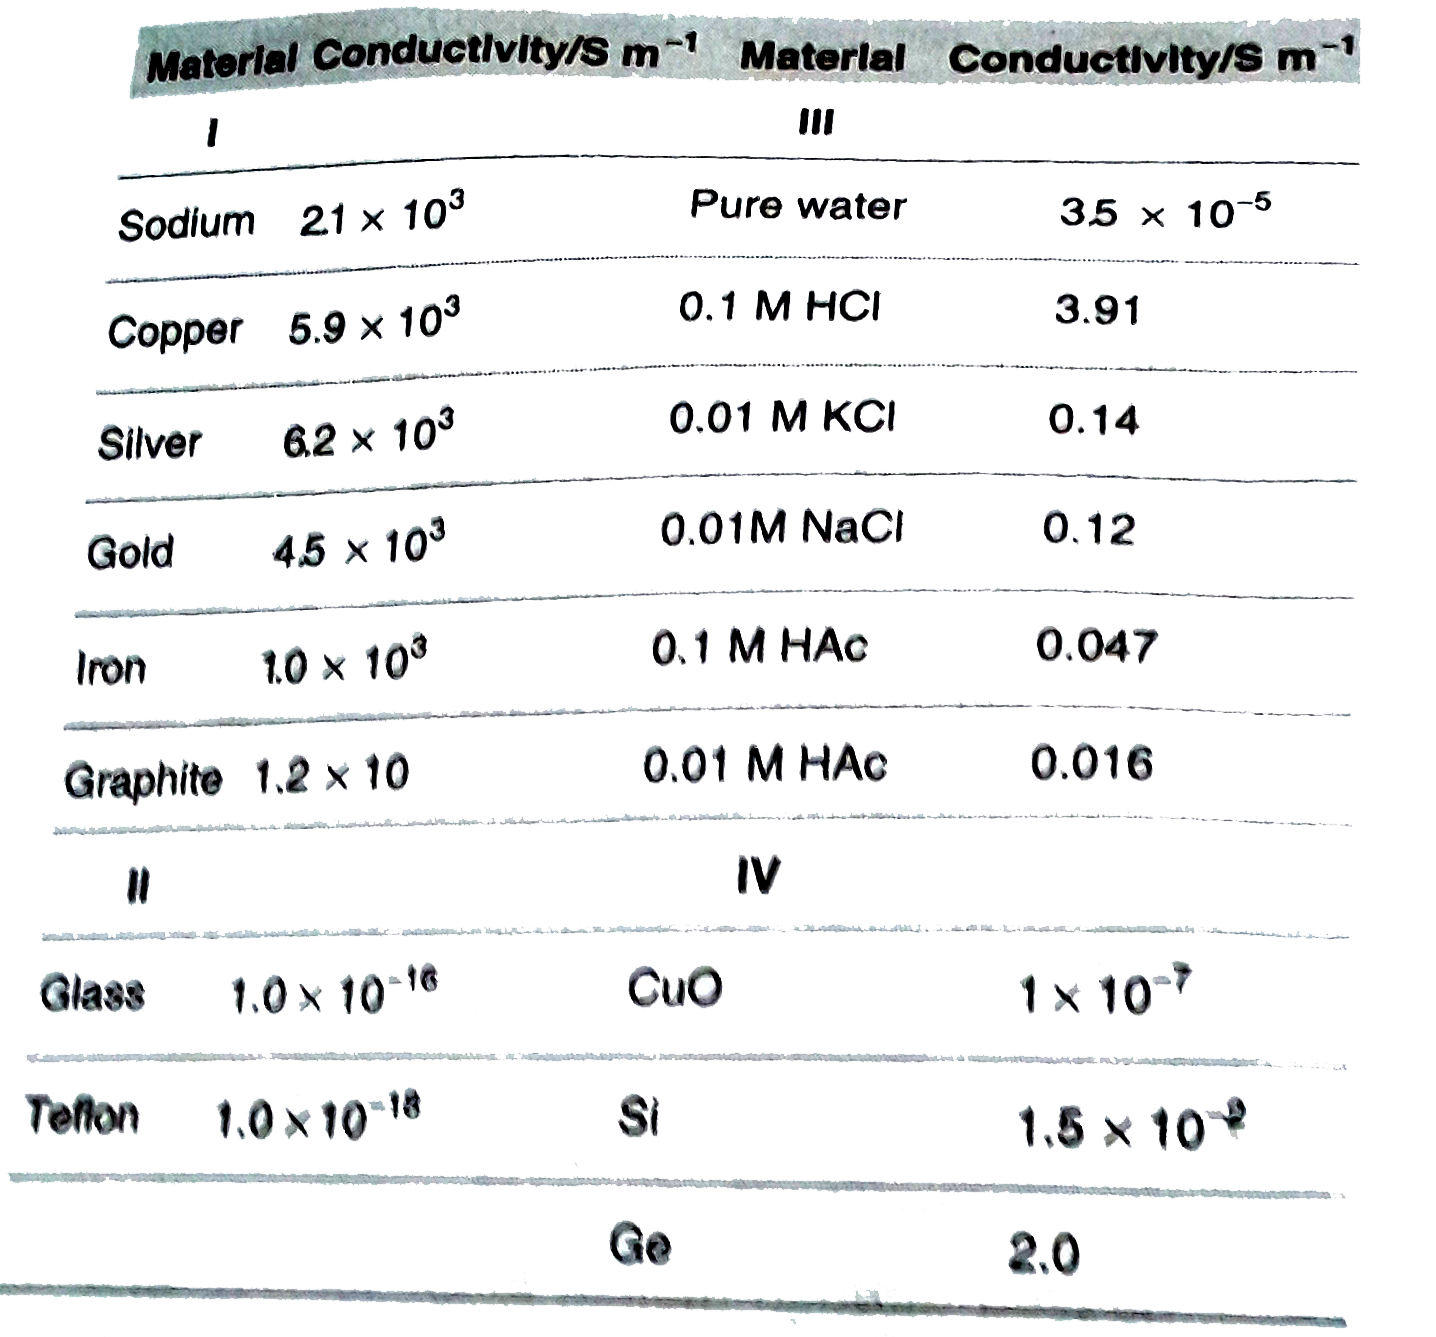 Material Conductivity/S m⁻¹ Material Conductivity/S m⁻¹
I III
Sodium 2.1 × 10³ Pure water 3.5 × 10⁻⁵
Copper 5.9 × 10³ 0.1 M HCl 3.91
Silver 6.2 × 10³ 0.01 M KCl 0.14
Gold 4.5 × 10³ 0.01M NaCl 0.12
Iron 1.0 × 10³ 0.1 M HAc 0.047
Graphite 1.2 × 10 0.01 M HAc 0.016
II IV
Glass 1.0 × 10⁻¹⁶ CuO 1 × 10⁻⁷
Teflon 1.0 × 10⁻¹⁸ Si
Ge 2.0